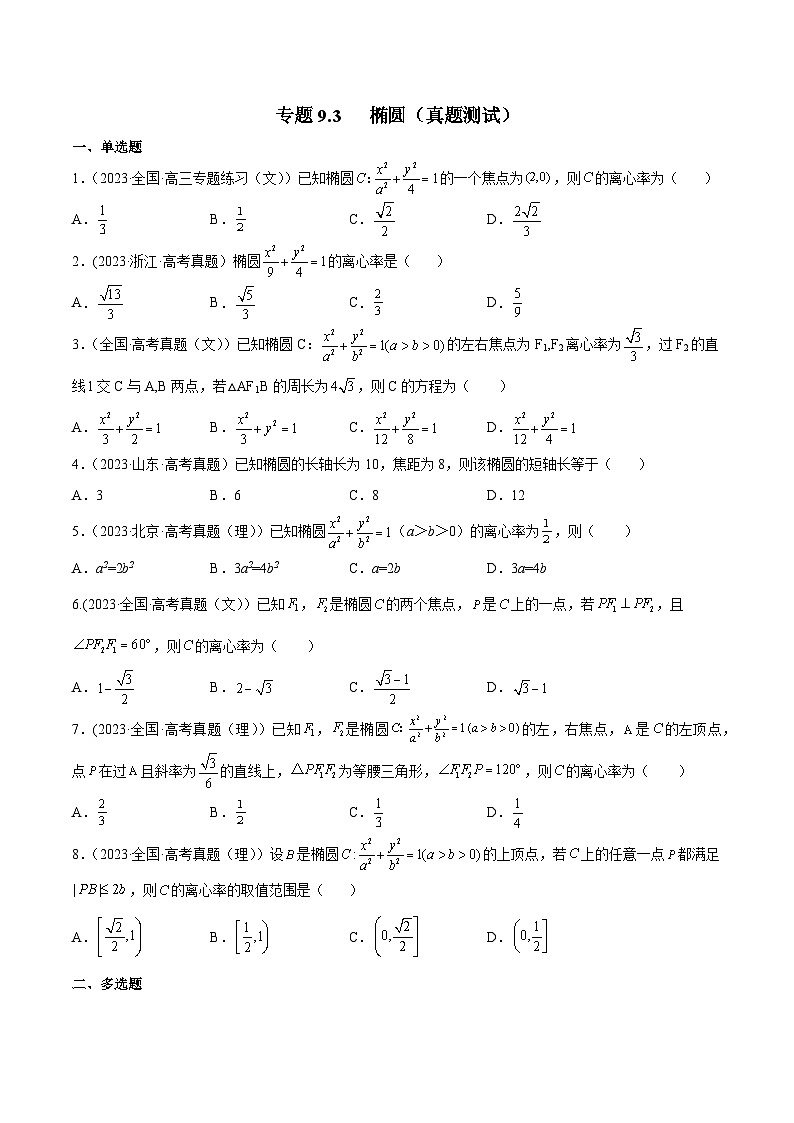 专题9.3 椭圆（真题测试）
一、单选题
1.（2023·全国·高三专题练习（文））已知椭圆C:x²/a²+y²/4=1的一个焦点为(2,0)，则C的离心率为（ ）
A．1/3 B．1/2 C．√2/2 D．2√2/3
2．(2023·浙江·高考真题）椭圆x²/9+y²/4=1的离心率是（ ）
A．√13/3 B．√5/3 C．2/3 D．5/9
3.（全国·高考真题（文））已知椭圆C：x²/a²+y²/b²=1(a>b>0)的左右焦点为F₁,F₂离心率为√3/3，过F₂的直
线l交C与A,B两点，若△AF₁B的周长为4√3，则C的方程为（ ）
A．x²/3+y²/2=1 B．x²/3+y²=1 C．x²/12+y²/8=1 D．x²/12+y²/4=1
4.（2023·山东·高考真题）已知椭圆的长轴长为10，焦距为8，则该椭圆的短轴长等于（ ）
A．3 B．6 C．8 D．12
5.（2023·北京·高考真题（理））已知椭圆x²/a²+y²/b²=1（a＞b＞0）的离心率为1/2，则（ ）
A．a²=2b² B．3a²=4b² C．a=2b D．3a=4b
6.(2023·全国·高考真题（文））已知F₁，F₂是椭圆C的两个焦点，P是C上的一点，若PF₁⊥PF₂，且
∠PF₂F₁=60°，则C的离心率为（ ）
A．1−√3/2 B．2−√3 C．(√3−1)/2 D．√3−1
7．(2023·全国·高考真题（理））已知F₁，F₂是椭圆C:x²/a²+y²/b²=1(a>b>0)的左，右焦点，A是C的左顶点，
点P在过A且斜率为√3/6的直线上，△PF₁F₂为等腰三角形，∠F₁F₂P=120°，则C的离心率为（ ）
A．2/3 B．1/2 C．1/3 D．1/4
8.（2023·全国·高考真题（理））设B是椭圆C:x²/a²+y²/b²=1(a>b>0)的上顶点，若C上的任意一点P都满足
|PB|≤2b，则C的离心率的取值范围是（ ）
A．[√2/2,1) B．[1/2,1) C．(0,√2/2] D．(0,1/2]
二、多选题